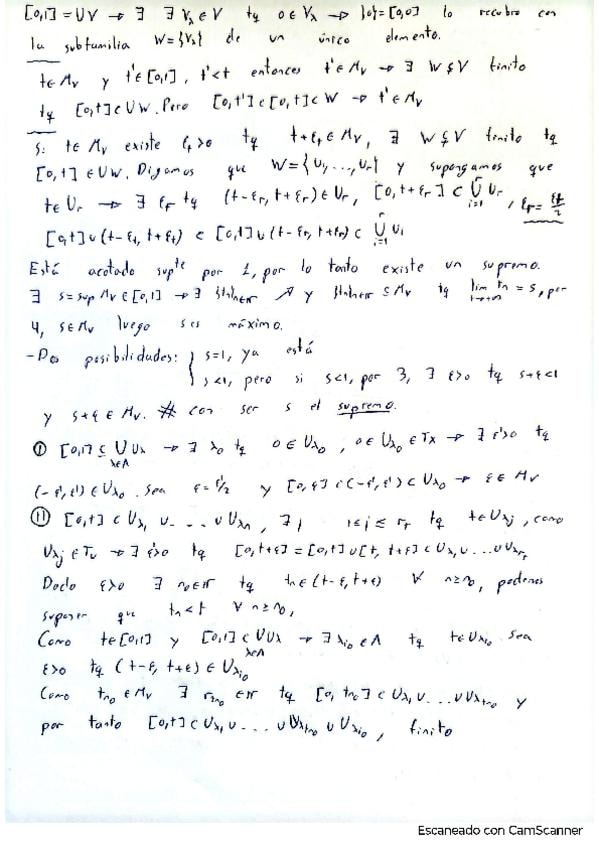 [0,1] = UV → ∃ ∃ Vλ ∈ V tq 0 ∈ Vλ → {0} = [0,0] lo recubro con
la subfamilia W = {Vλ} de un único elemento.
t ∈ Mv y t' ∈ [0,1], t' < t entonces t' ∈ Mv → ∃ W ⊊ V finito
tq [0,t] ⊂ UW. Pero [0,t'] ⊂ [0,t] ⊂ W → t' ∈ Mv
Si t ∈ Mv existe εt > 0 tq t + εt ∈ Mv, ∃ W ⊊ V finito tq
[0,t] ∈ UW. Digamos que W = {U1, ..., Ur} y supongamos que
t ∈ Ur → ∃ εr tq (t-εr, t+εr) ∈ Ur, [0, t+εr] ⊂ ⋃ᵢ₌₁ʳ Ur, εr = εt/2
[0,t] ∪ (t-εt, t+εt) ⊂ [0,t] ∪ (t-εr, t+εr) ⊂ ⋃ᵢ₌₁ʳ Ui
Está acotado supte por 1, por lo tanto existe un supremo.
∃ s = sup Mv ∈ [0,1] → ∃ {tn}n∈ℕ ↗ y {tn}n∈ℕ ⊆ Mv tq lim tn = s, por
4, s ∈ Mv luego s es máximo.
- Dos posibilidades: { s=1, ya está
s<1, pero si s<1, por 3, ∃ ε>0 tq s+ε<1
y s+ε ∈ Mv. # con ser s el supremo.
① [0,1] ⊆ ⋃ Uλ λ∈Λ → ∃ λ0 tq 0 ∈ Uλ0, 0 ∈ Uλ0 ∈ Tx → ∃ ε'>0 tq
(-ε', ε') ∈ Uλ0. Sea ε = ε'/2 y [0,ε] ⊂ (-ε', ε') ⊂ Uλ0 → ε ∈ Mv
⑪ [0,t] ⊂ Uλ1 ∪ ... ∪ Uλn, ∃ j 1≤j≤rt tq t ∈ Uλj, como
Uλj ∈ Tu → ∃ ε>0 tq [0,t+ε] = [0,t] ∪ [t, t+ε] ⊂ Uλ1 ∪ ... ∪ Uλrt
Dado ε>0 ∃ n0 ∈ ℕ tq tn ∈ (t-ε, t+ε) ∀ n≥n0, podemos
suponer que tn < t ∀ n≥n0,
Como t ∈ [0,1] y [0,1] ⊂ ⋃ Uλ λ∈Λ → ∃ λi0 ∈ Λ tq t ∈ Uλi0 sea
ε>0 tq (t-ε, t+ε) ∈ Uλi0
Como tn0 ∈ Mv ∃ rtn0 ∈ ℕ tq [0, tn0] ⊂ Uλ1 ∪ ... ∪ Uλrtn0 y
por tanto [0,t] ⊂ Uλ1 ∪ ... ∪ Uλrtn0 ∪ Uλi0, finito
Escaneado con CamScanner